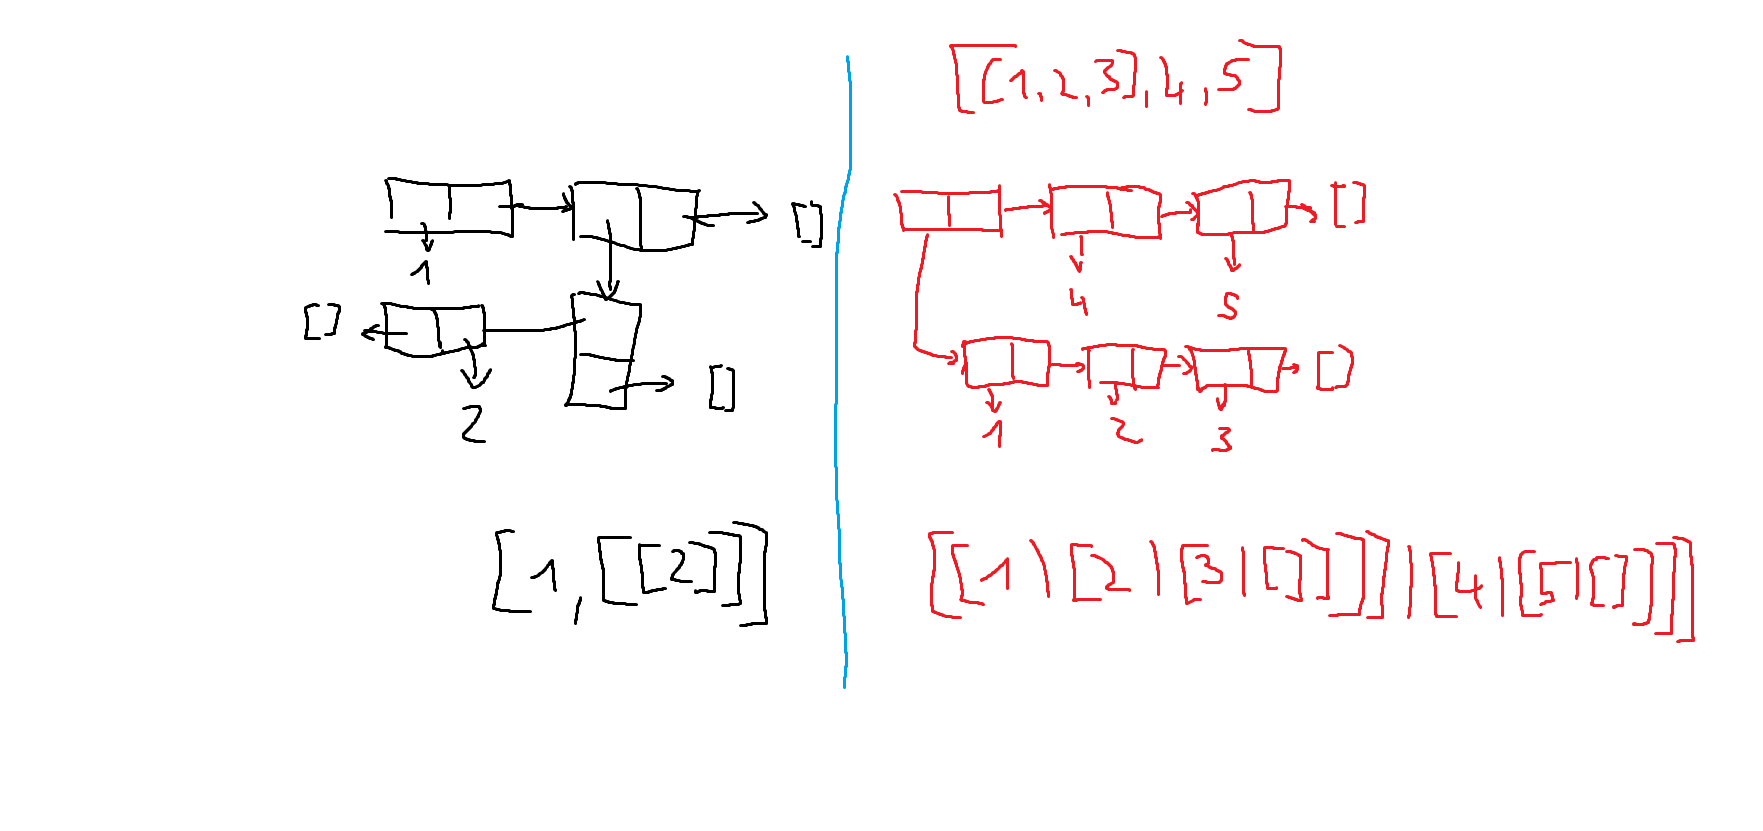 []
1
[]
[]
2
[1,[[2]]]
[[1,2,3],4,5]
[]
4 5
[]
1 2 3
[[1|[2|[3|[]]]]|[4|[5|[]]]]